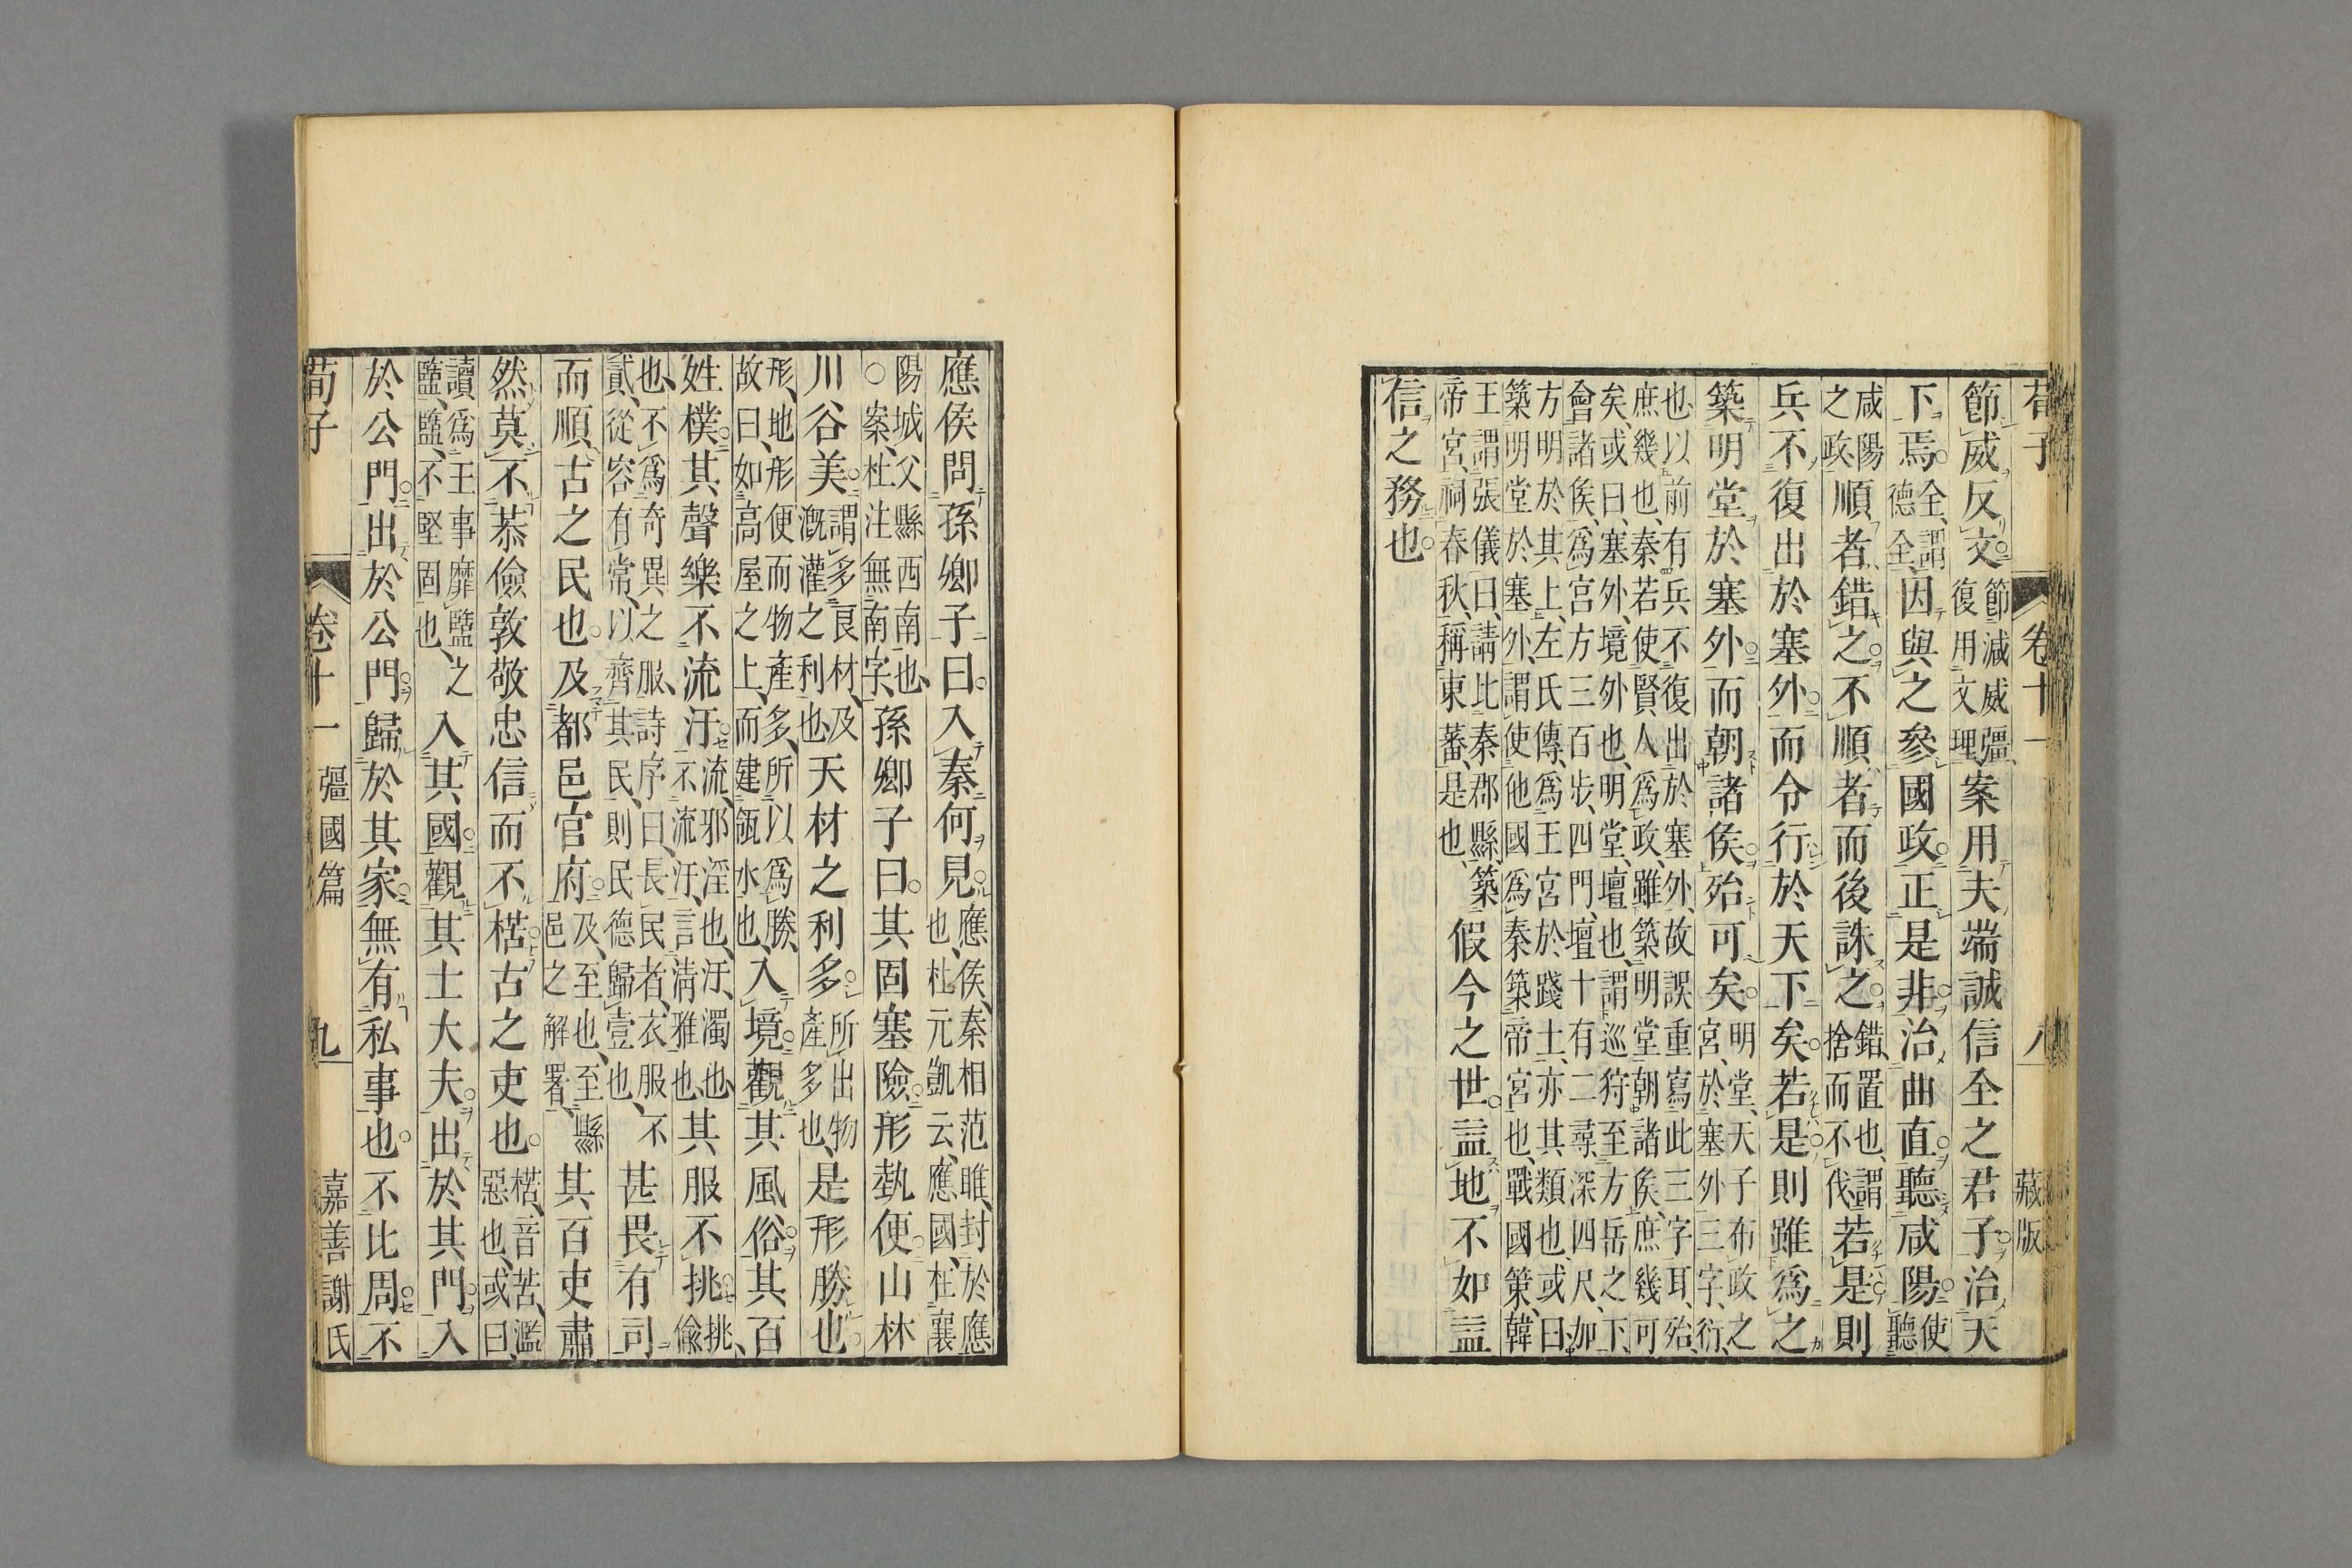 荀子 卷十一 八 藏版
節威反文節減威彊復用文理案用夫端誠信全之君子治天
下焉全謂德全因與之參國政正是非治曲直聽咸陽使聽
咸陽之政順者錯之不順者而後誅之錯置也謂捨而不伐若是則
兵不復出於塞外而令行於天下矣若是則雖爲之
築明堂於塞外而朝諸侯殆可矣明堂天子布政之宮於塞外三字衍
也以前有兵不復出於塞外故誤重寫此三字耳殆
庶幾也秦若使賢人爲政雖築明堂朝諸侯庶幾可
矣或曰塞外境外也明堂壇也謂巡狩至方岳之下
會諸侯爲宮方三百步四門壇十有二尋深四尺加
方明於其上左氏傳爲王宮於踐土亦其類也或曰
築明堂於塞外謂使他國爲秦築帝宮也戰國策韓
王謂張儀曰請比秦郡縣築帝宮祠春秋稱東蕃是也假今之世益地不如益
信之務也
應侯問孫卿子曰入秦何見應侯秦相范雎封於應也杜元凱云應國在襄
陽城父縣西南也○案杜注無南字孫卿子曰其固塞險形埶便山林
川谷美謂多良材及漑灌之利也天材之利多所出物產多也是形勝也
形地形便而物產多所以爲勝故曰如高屋之上而建瓴水也入境觀其風俗其百
姓樸其聲樂不流汙流邪淫也汙濁也不流汙言清雅也其服不挑挑偷
也不爲奇異之服詩序曰長民者衣服不貳從容有常以齊其民則民德歸壹也甚畏有司
而順古之民也及都邑官府及至也至縣邑之解署其百吏肅
然莫不恭儉敦敬忠信而不楛古之吏也楛音苦濫惡也或曰
讀爲王事靡盬之盬盬不堅固也入其國觀其士大夫出於其門入
於公門出於公門歸於其家無有私事也不比周不
荀子 卷十一 彊國篇 九 嘉善謝氏